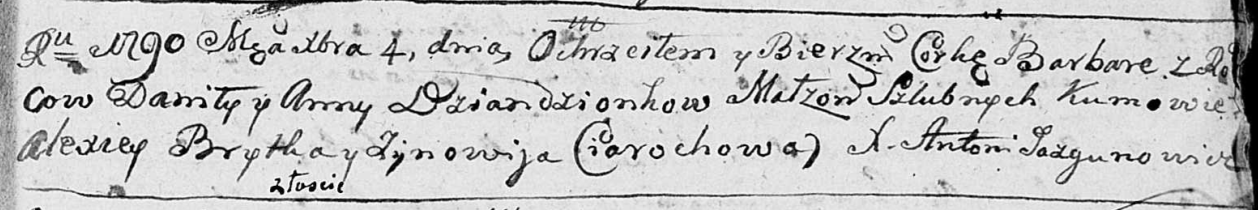 Ru 1790 Mca Xbra 4, dnia, Ochrzciłem y Bierzm Corkę Barbarę z Ro
cow Daniły y Anny Dziandzionkow Małzon Szlubnych Kumowie
Alexiey Brytka y Zynowija Ciarochowa) X. Antoni Jazgunowicz
złoscie